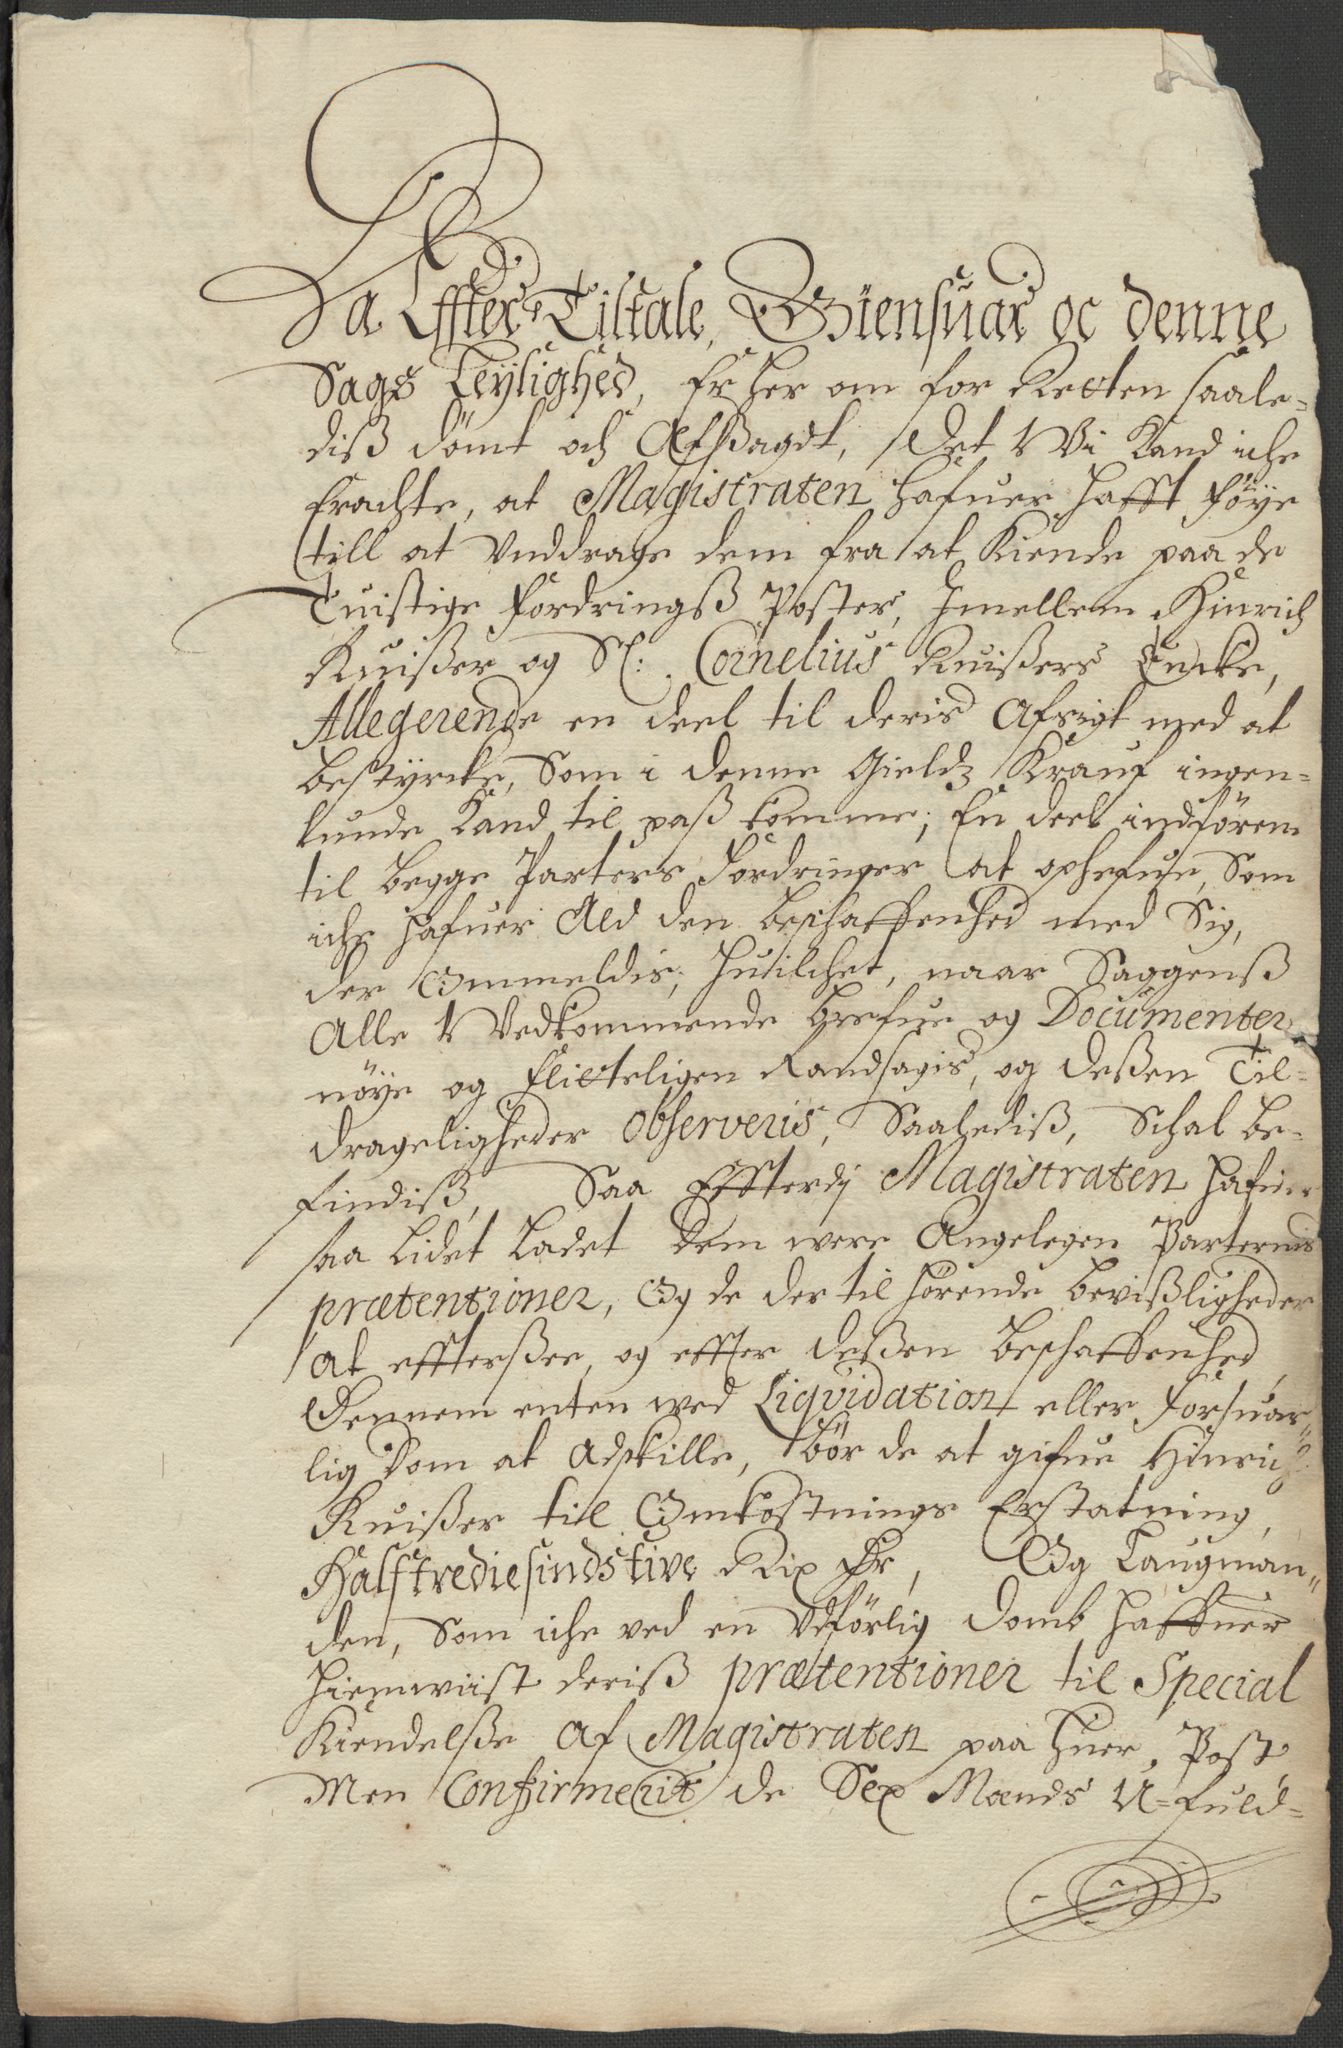 Da Effter Tiltale, Giensuar oc denne
Sags Leylighed, Er her om for Retten saale-
diß dömt och Afsagdt, Det Wi Kand iche
Erachte, at Magistraten hafuer hafft Föye
till at Vnddrage dem fra at Kiende paa de
Tuistige Fordringß Poster, Imellem Hinrich
Kuißer og Sl: Cornelius Kuißers Encke,
Allegerende en deel til deris Afsigt med at
bestyrcke, Som i denne Gieldz Krauf ingen-
lunde Kand til paß komme; En deel indfören
til begge Parters Fordringer at ophefue, Som
iche hafuer Ald den beschaffenhed med Sig,
der Ommeldis; Huilchet, naar Saggenß
Alle Wedkommende Brefue og Documenter
nöye og flitteligen Randsagis, og deßen Til-
drageligheder Observeris, Saalediß, Schal be-
findiß, Saa Effterdj Magistraten hafuer
saa lidet Ladet dem were Angelegen Parternis
prætentioner, Og de der til hörende bevißligheder
at effterßee, og effter deßen beschaffenhed,
Dennem enten wed Liqvidation eller forsuar-
lig Dom at adskille, bör de at gifue Hinrich
Kuißer til Omkostnings Erstatning,
Halftrediesindstive Rix Dr, Og Laugman-
den, Som iche ved en Udförlig Domb haffuer
hiemwiist deriß prætentioner til Special
Kiendelße Af Magistraten paa huer Post
Men Confirmerit de Sex Mænds U-fuld-